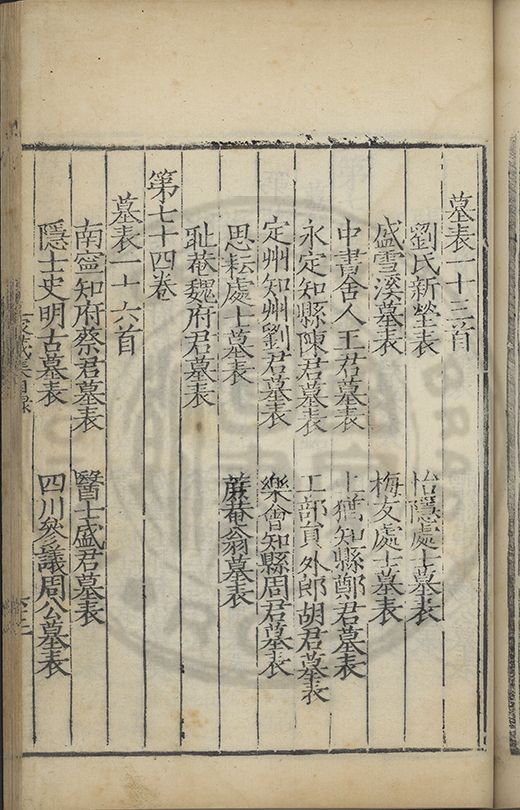 墓表一十三首
劉氏新塋表 怡隱處士墓表
盛雪溪墓表 梅友處士墓表
中書舍人王君墓表 上猶知縣鄭君墓表
永定知縣陳君墓表 工部員外郎胡君墓表
定州知州劉君墓表 樂會知縣周君墓表
思耘處士墓表 蔗菴翁墓表
耻菴魏府君墓表
第七十四卷
墓表一十六首
南寧知府蔡君墓表 醫士盛君墓表
隱士史明古墓表 四川參議周公墓表